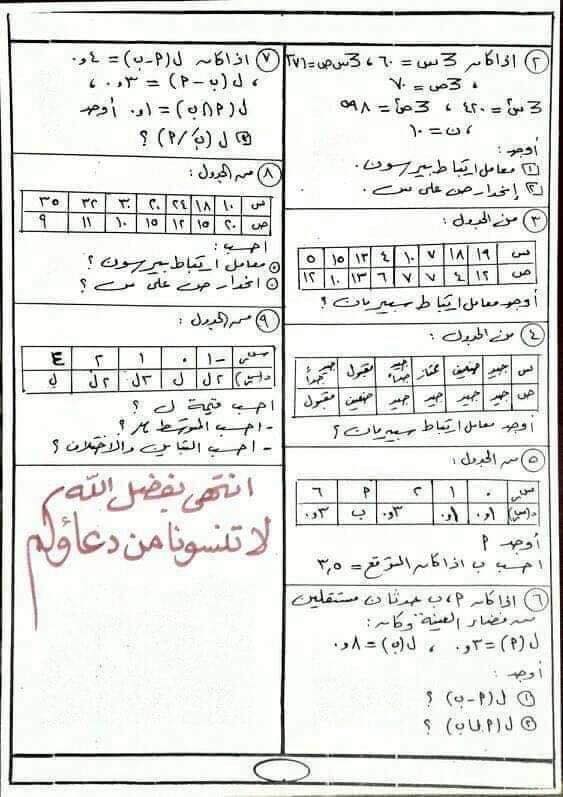 ٢ اذا كانت 3س = ٦٠ ، 3س ص = ٣٧١
، 3ص = ٧٠
3س² = ٤٢٠ ، 3ص² = ٥٩٨
، ن = ١٠
أوجد :
١ معامل ارتباط بيرسون .
٢ إنحدار ص على س .
٣ من الجدول :
س ١٩ ١٨ ٧ ١٠ ٤ ١٣ ١٥ ٥
ص ١٢ ٤ ٧ ٧ ٦ ١٣ ١٠ ١٢
أوجد معامل ارتباط سبيرمان ؟
٤ من الجدول :
س جيد ضعيف ممتاز جيد جداً مقبول جيد جداً
ص جيد جيد جيد جيد ضعيف مقبول
أوجد معامل ارتباط سبيرمان ؟
٥ من الجدول :
سں ٠ ١ ٢ P ٦
د(سں) ٠,١ ٠,١ ٠,٣ ب ٠,٣
أوجد P
احسب ب اذا كان المتوقع = ٣,٥
٦ اذا كان P ، ب حدثان مستقلين
من فضاء العينة وكان :
ل(P) = ٠,٣ ، ل(ب) = ٠,٨
أوجد :
١ ل(P-ب) ؟
٢ ل(P∪ب) ؟
٧ اذا كان ل(P-ب) = ٠,٤
، ل(ب-P) = ٠,٣ ،
ل(P∩ب) = ٠,١ أوجد
ل(ب/P) ؟
٨ من الجدول :
س ١٠ ١٨ ٢٤ ٢٠ ٣٠ ٣٢ ٣٥
ص ٢٠ ١٥ ١٢ ١٥ ١٠ ١١ ٩
احسب :
معامل ارتباط بيرسون ؟
انحدار ص على س ؟
٩ من الجدول :
سں -١ ٠ ١ ٢ ٤
د(سں) ٢ل ل ٣ل ٢ل ل
احسب قيمة ل ؟
- احسب المتوسط ؟
- احسب التباين والاختلاف ؟
انتهى بفضل الله
لا تنسونا من دعاؤكم